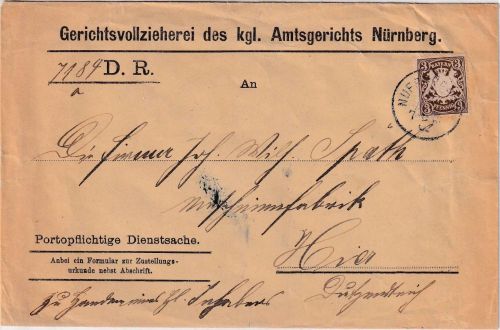 Gerichtsvollzieherei des kgl. Amtsgerichts Nürnberg.
7184 D. R.
a
An
3 BAYERN 3
3 PFENNIG 3
Die Firma Joh. Wilh. Spath
Maschinenfabrik
Portopflichtige Dienstsache.
Hier
Anbei ein Formular zur Zustellungs-
urkunde nebst Abschrift.
zu Handen eines Inhabers
Dutzendteich